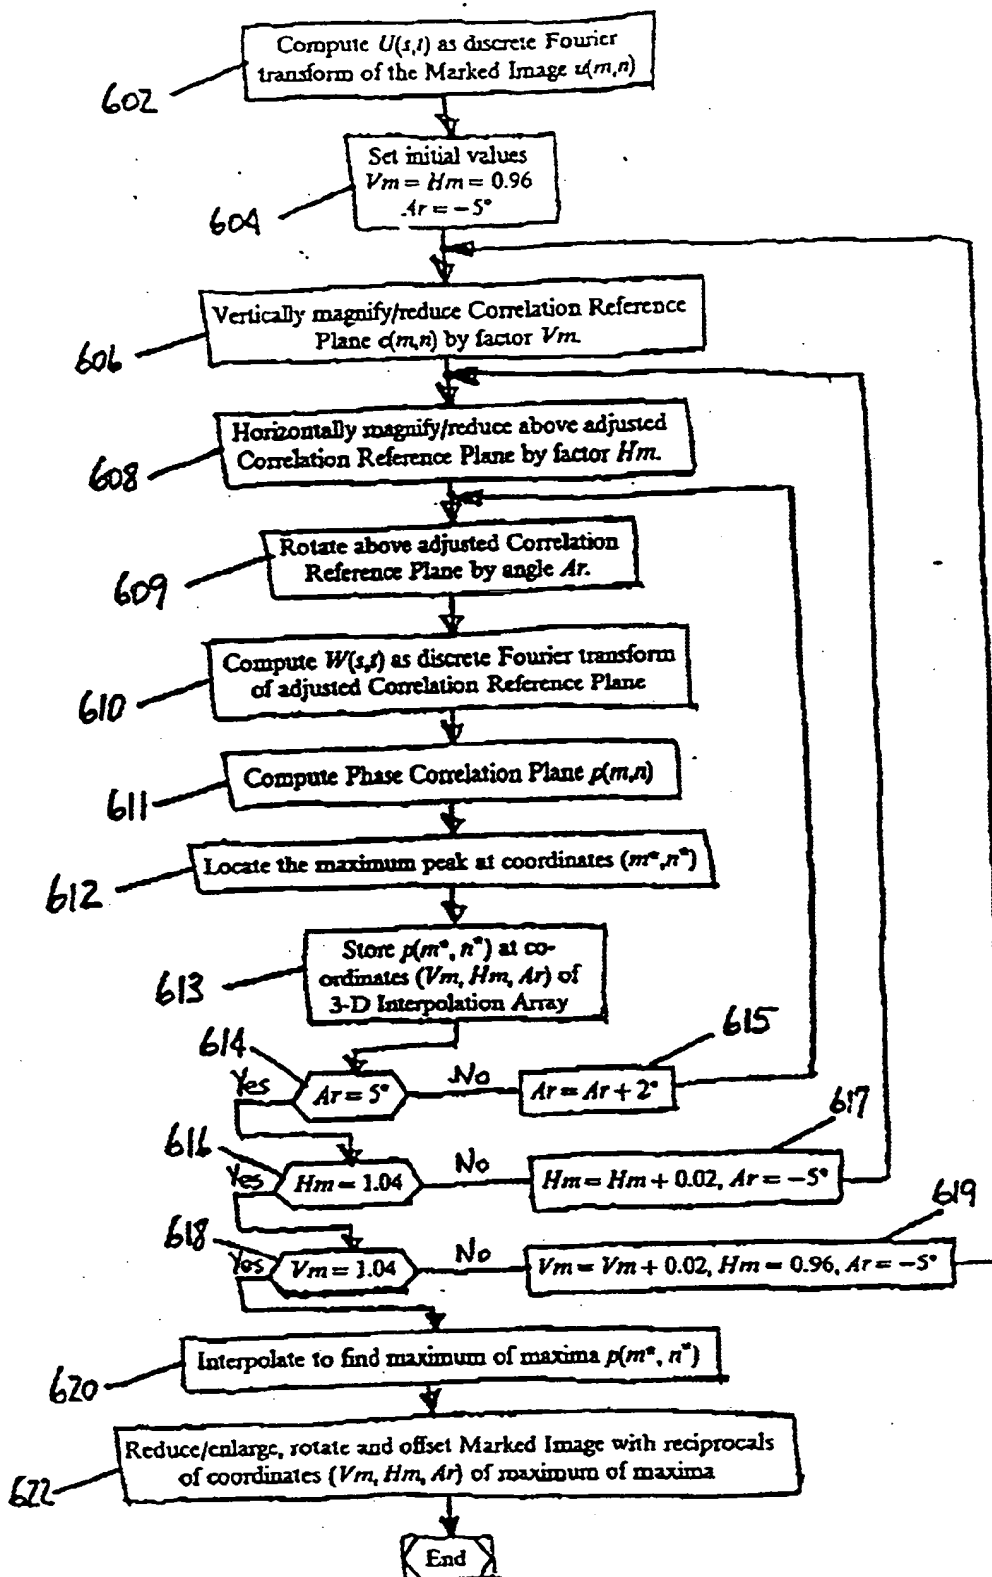 Compute U(s,t) as discrete Fourier
transform of the Marked Image u(m,n)
602
Set initial values
Vm = Hm = 0.96
Ar = −5°
604
Vertically magnify/reduce Correlation Reference
Plane c(m,n) by factor Vm.
606
Horizontally magnify/reduce above adjusted
Correlation Reference Plane by factor Hm.
608
Rotate above adjusted Correlation
Reference Plane by angle Ar.
609
Compute W(s,t) as discrete Fourier transform
of adjusted Correlation Reference Plane
610
Compute Phase Correlation Plane p(m,n)
611
Locate the maximum peak at coordinates (m*,n*)
612
Store p(m*, n*) at co-
ordinates (Vm, Hm, Ar) of
3-D Interpolation Array
613
614
615
Yes
Ar = 5°
No
Ar = Ar + 2°
616
617
Yes
Hm = 1.04
No
Hm = Hm + 0.02, Ar = −5°
618
619
Yes
Vm = 1.04
No
Vm = Vm + 0.02, Hm = 0.96, Ar = −5°
Interpolate to find maximum of maxima p(m*, n*)
620
Reduce/enlarge, rotate and offset Marked Image with reciprocals
of coordinates (Vm, Hm, Ar) of maximum of maxima
622
End